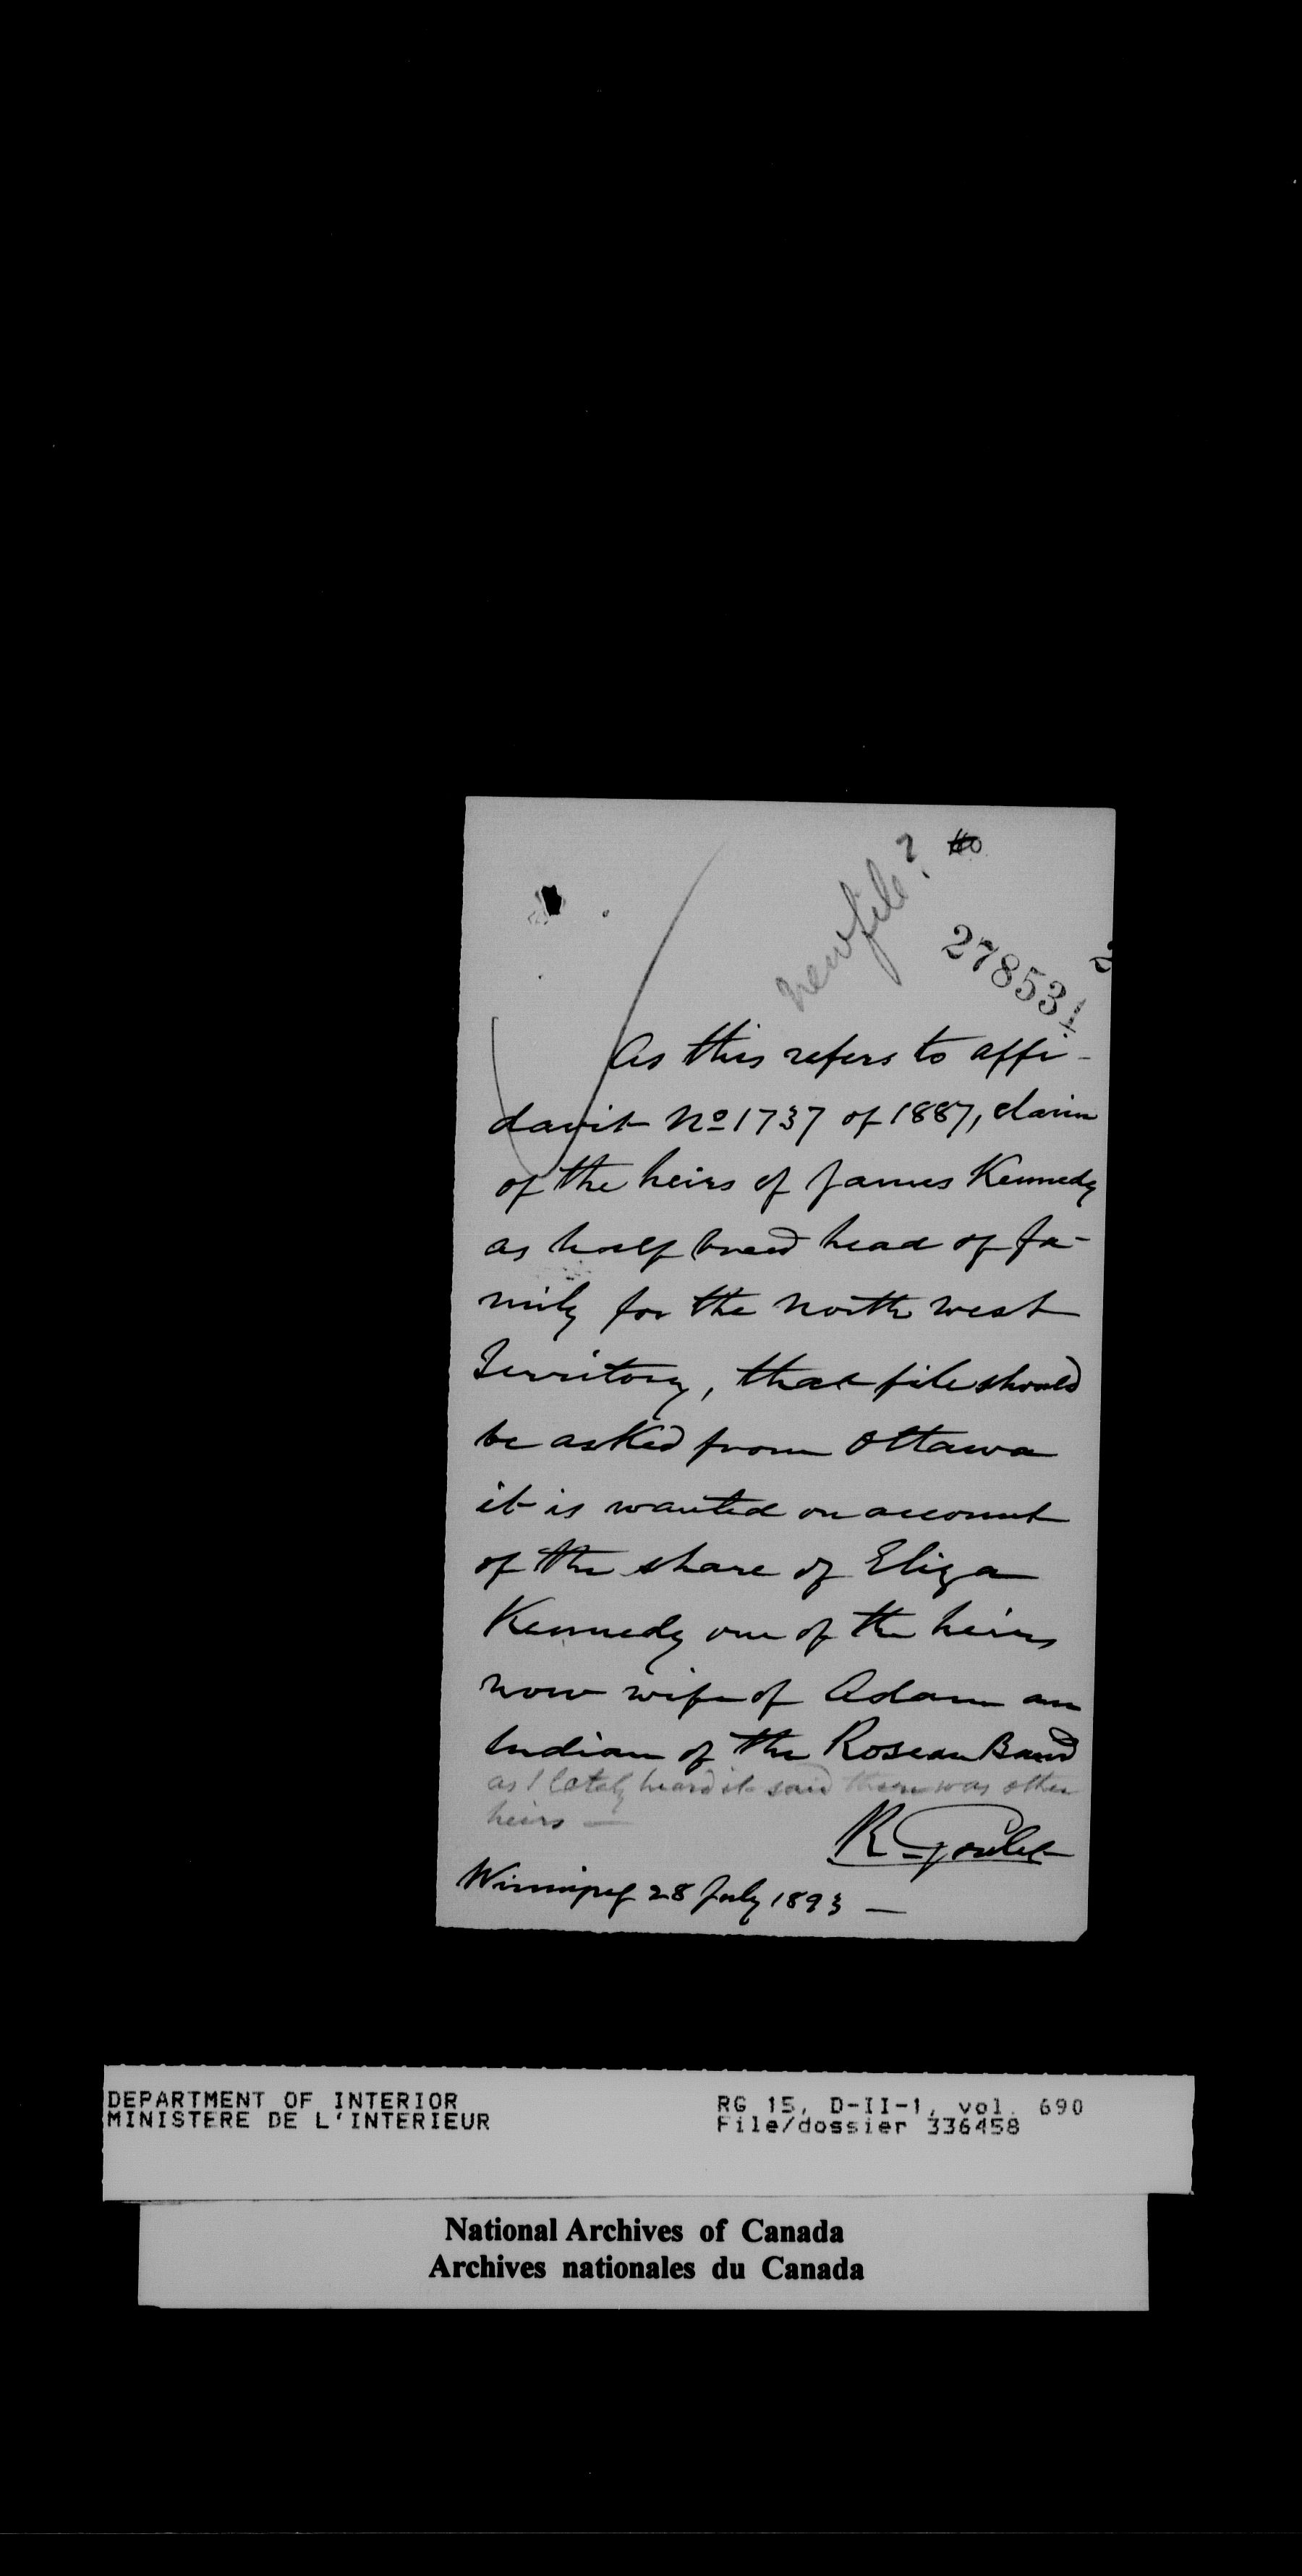 new file?
278531
2
As this refers to affi-
davit No 1737 of 1887, claim
of the heirs of James Kennedy
as half breed head of fa-
mily for the North West
Territory, that file should
be asked from Ottawa
it is wanted on account
of the share of Eliza
Kennedy one of the heirs
now wife of Adam an
Indian of the Roseau Band
as I lately heard it said there was other
heirs —
R. Goulet
Winnipeg 28 July 1893 —
DEPARTMENT OF INTERIOR
MINISTERE DE L'INTERIEUR
RG 15, D-II-1, vol. 690
File/dossier 336458
National Archives of Canada
Archives nationales du Canada